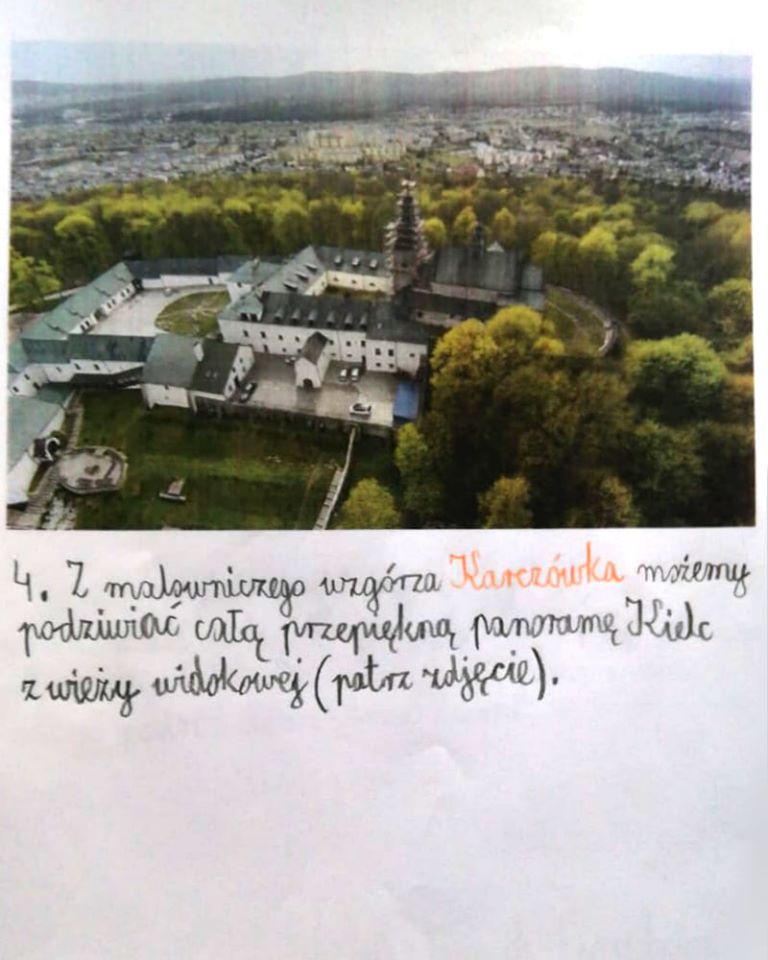 4. Z malowniczego wzgórza Karczówka możemy
podziwiać całą przepiękną panoramę Kielc
z wieży widokowej (patrz zdjęcie).